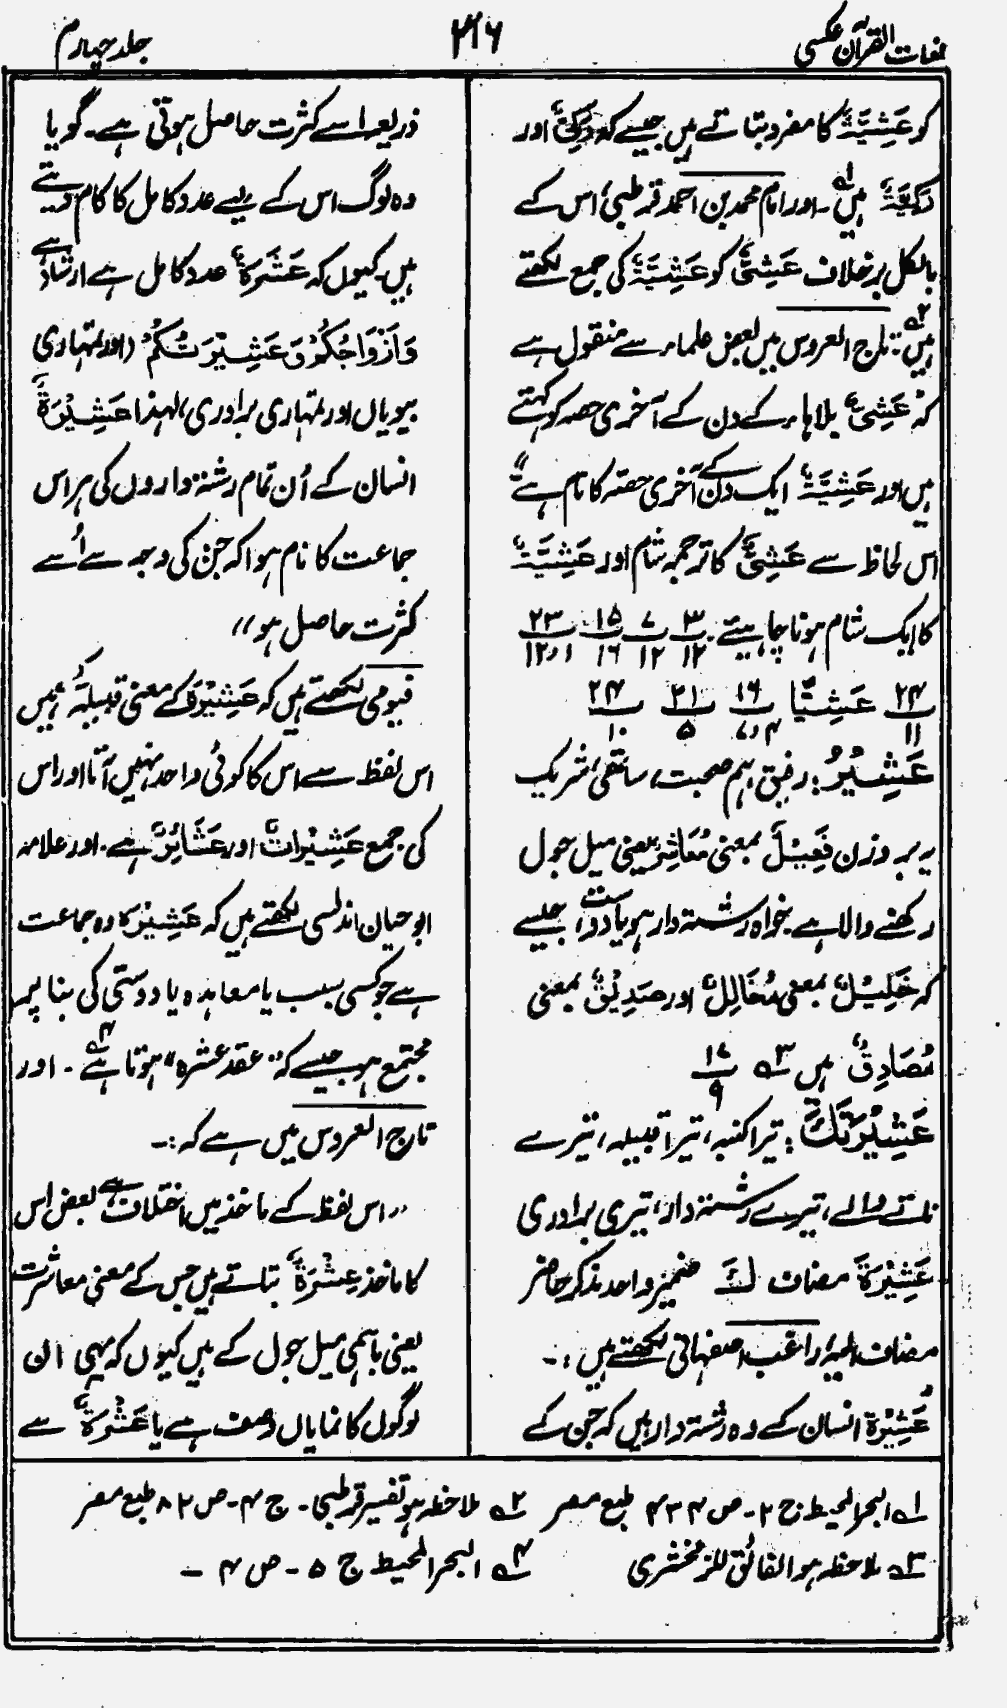 لغات القرآن عکسی
۳۱۶
جلد چہارم
کو عَشِیَّۃٌ کا مفرد بتاتے ہیں جیسے کہ رَکِیٌّ اور
رَکِیَّۃٌ ہیں۱ھ۔ اور امام محمد بن احمد قرطبی، اس کے
بالکل بر خلاف عَشِیٌّ کو عَشِیَّۃٌ کی جمع لکھتے
ہیں۲ھ: تاج العروس میں بعض علماء سے منقول ہے
کہ عَشِیٌّ بلا ہاء کے دن کے آخری حصہ کو کہتے
ہیں اور عَشِیَّۃٌ ایک دن کے آخری حصّہ کا نام ہے“
اس لحاظ سے عَشِیٌّ کا ترجمہ شام اور عَشِیَّۃٌ
کا ایک شام ہونا چاہیئے۔ ۳/۱۲ ۷/۱۲ ۱۵/۱۶ ۲۳/۱۲٫۱
۲۴/۱۱ عَشِیًّا ۱۶/۷٫۴ ۲۱/۵ ۲۴/۱۰
عَشِیْرُ: رفیق، ہم صحبت، ساتھی، شریک
یہ بر وزن فَعِیْلٌ بمعنی مُعَاشِرٌ یعنی میل جول
رکھنے والا ہے خواہ رشتہ دار ہو یا دوست، جیسے
کہ خَلِیْلٌ بمعنی مُخَالِلٌ اور صَدِیْقٌ بمعنی
مُصَادِقٌ ہیں ۳ھ ۱۷/۹
عَشِیْرَتَکَ: تیرا کنبہ، تیرا قبیلہ، تیرے
ناتے والے، تیرے رشتہ دار، تیری برادری
عَشِیْرَۃَ مضاف لَکَ ضمیر واحد مذکر حاضر
مضاف الیہ، راغب اصفہانی لکھتے ہیں:۔
عَشِیْرَۃ انسان کے وہ رشتہ دار ہیں کہ جن کے
ذریعہ اسے کثرت حاصل ہوتی ہے۔ گویا
وہ لوگ اس کے لیے عدد کامل کا کام دیتے
ہیں۔ کیوں کہ عَشَرَۃٌ عدد کامل ہے ارشاد ہے
وَاَزْوَاجُکُمْ وَعَشِیْرَتُکُمْ (اور تمہاری
بیویاں اور تمہاری برادری، لہٰذا عَشِیْرَۃٌ
انسان کے اُن تمام رشتہ داروں کی ہر اس
جماعت کا نام ہوا کہ جن کی وجہ سے اُسے
کثرت حاصل ہو“
فیومی لکھتے ہیں کہ عَشِیْرَۃ کے معنی قبیلہ ہیں
اس لفظ سے اس کا کوئی واحد نہیں آتا اور اس
کی جمع عَشِیْرَاتٌ اور عَشَائِرٌ ہے۔ اور علامہ
ابو حیان اندلسی لکھتے ہیں کہ عَشِیْرَۃ وہ جماعت
ہے جو کسی سبب یا معاہدہ یا دوستی کی بنا پر
مجتمع ہو جیسے کہ ”عقد عشرہ“ ہوتا ہے۴ھ۔ اور
تاج العروس میں ہے کہ:۔
”اس لفظ کے ماخذ میں اختلاف ہے بعض اس
کا ماخذ عِشْرَۃٌ بتاتے ہیں جس کے معنی معاشرت
یعنی باہمی میل جول کے ہیں کیوں کہ یہی ان
لوگوں کا نمایاں وصف ہے یا عَشْرَۃٌ سے
۱ھ البحر المحیط ج ۲۔ ص ۴۳۴ طبع مصر ۲ھ ملاحظہ ہو تفسیر قرطبی۔ ج ۴۔ ص ۸۲ طبع مصر
۳ھ ملاحظہ ہو الفائق للزمخشری ۴ھ البحر المحیط ج ۵۔ ص ۴ –